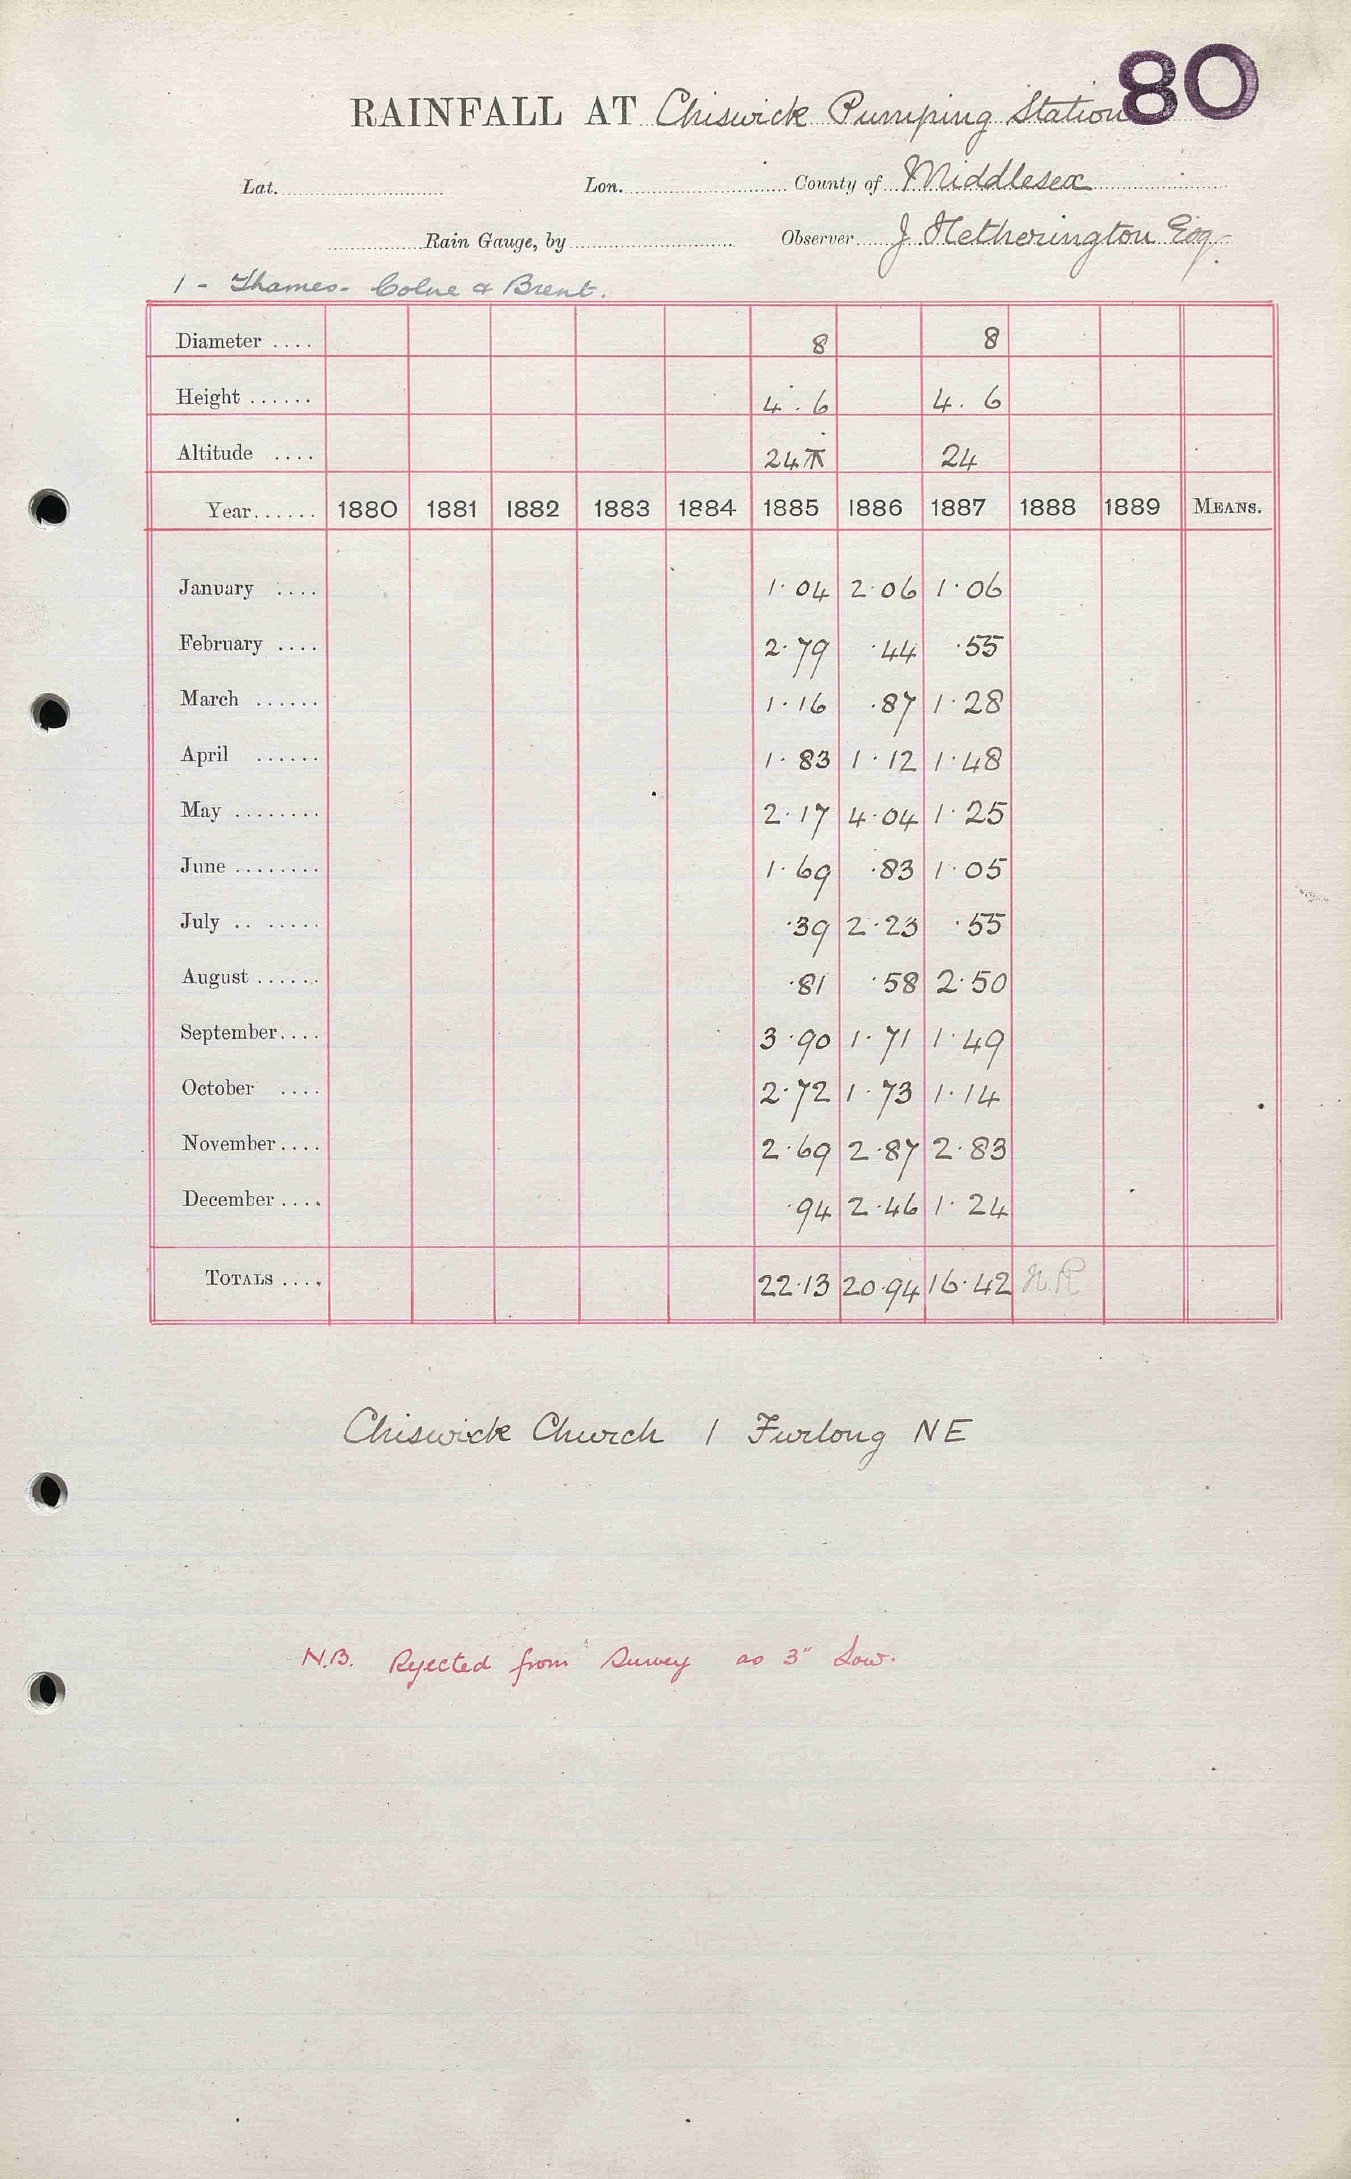 80
RAINFALL AT Chiswick Pumping Station
Lat. Lon. County of Middlesex
Rain Gauge, by Observer J Hetherington Esq.
1 - Thames - Colne & Brent.
Diameter .... 8 8
Height ...... 4. 6 4. 6
Altitude .... 24 24
Year...... 1880 1881 1882 1883 1884 1885 1886 1887 1888 1889 MEANS.
January .... 1·04 2·06 1·06
February .... 2·79 ·44 ·55
March ...... 1·16 ·87 1·28
April ...... 1·83 1·12 1·48
May ........ 2·17 4·04 1·25
June ........ 1·69 ·83 1·05
July .. ..... ·39 2·23 ·55
August ...... ·81 ·58 2·50
September.... 3·90 1·71 1·49
October .... 2·72 1·73 1·14
November.... 2·69 2·87 2·83
December.... ·94 2·46 1·24
TOTALS .... 22·13 20·94 16·42 N.R
Chiswick Church 1 Furlong NE
N.B. Rejected from Survey as 3" Low.